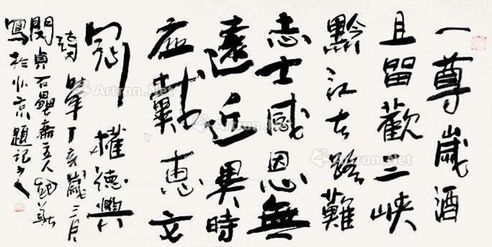 一尊歲酒
且留歡三峽
黔江去路難
志士感恩無
遠近異時
應戴惠文
冠 權德輿
丁亥歲三月
齋主人
於北京題記
Artron.Net